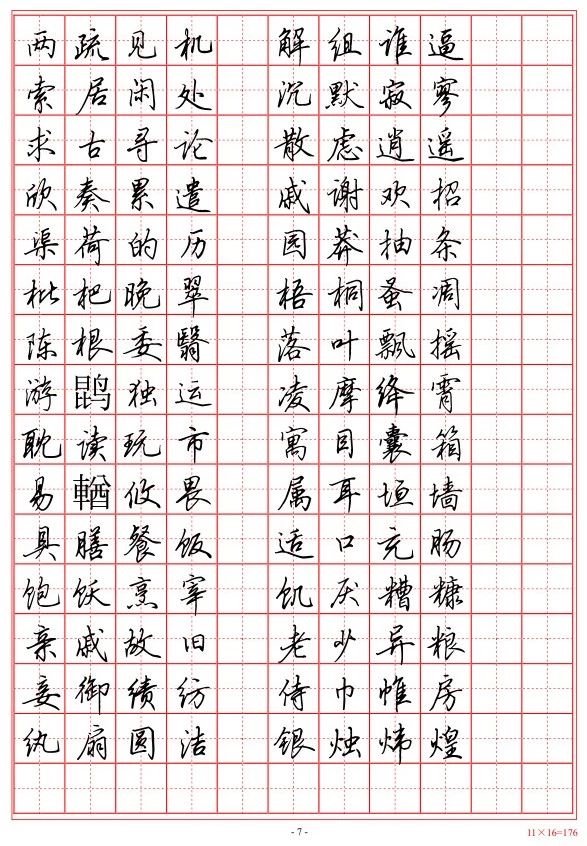 两疏见机 解组谁逼
索居闲处 沉默寂寥
求古寻论 散虑逍遥
欣奏累遣 戚谢欢招
渠荷的历 园莽抽条
枇杷晚翠 梧桐蚤凋
陈根委翳 落叶飘摇
游鹍独运 凌摩绛霄
耽读玩市 寓目囊箱
易輶攸畏 属耳垣墙
具膳餐饭 适口充肠
饱饫烹宰 饥厌糟糠
亲戚故旧 老少异粮
妾御绩纺 侍巾帷房
纨扇圆洁 银烛炜煌
- 7 -
11×16=176